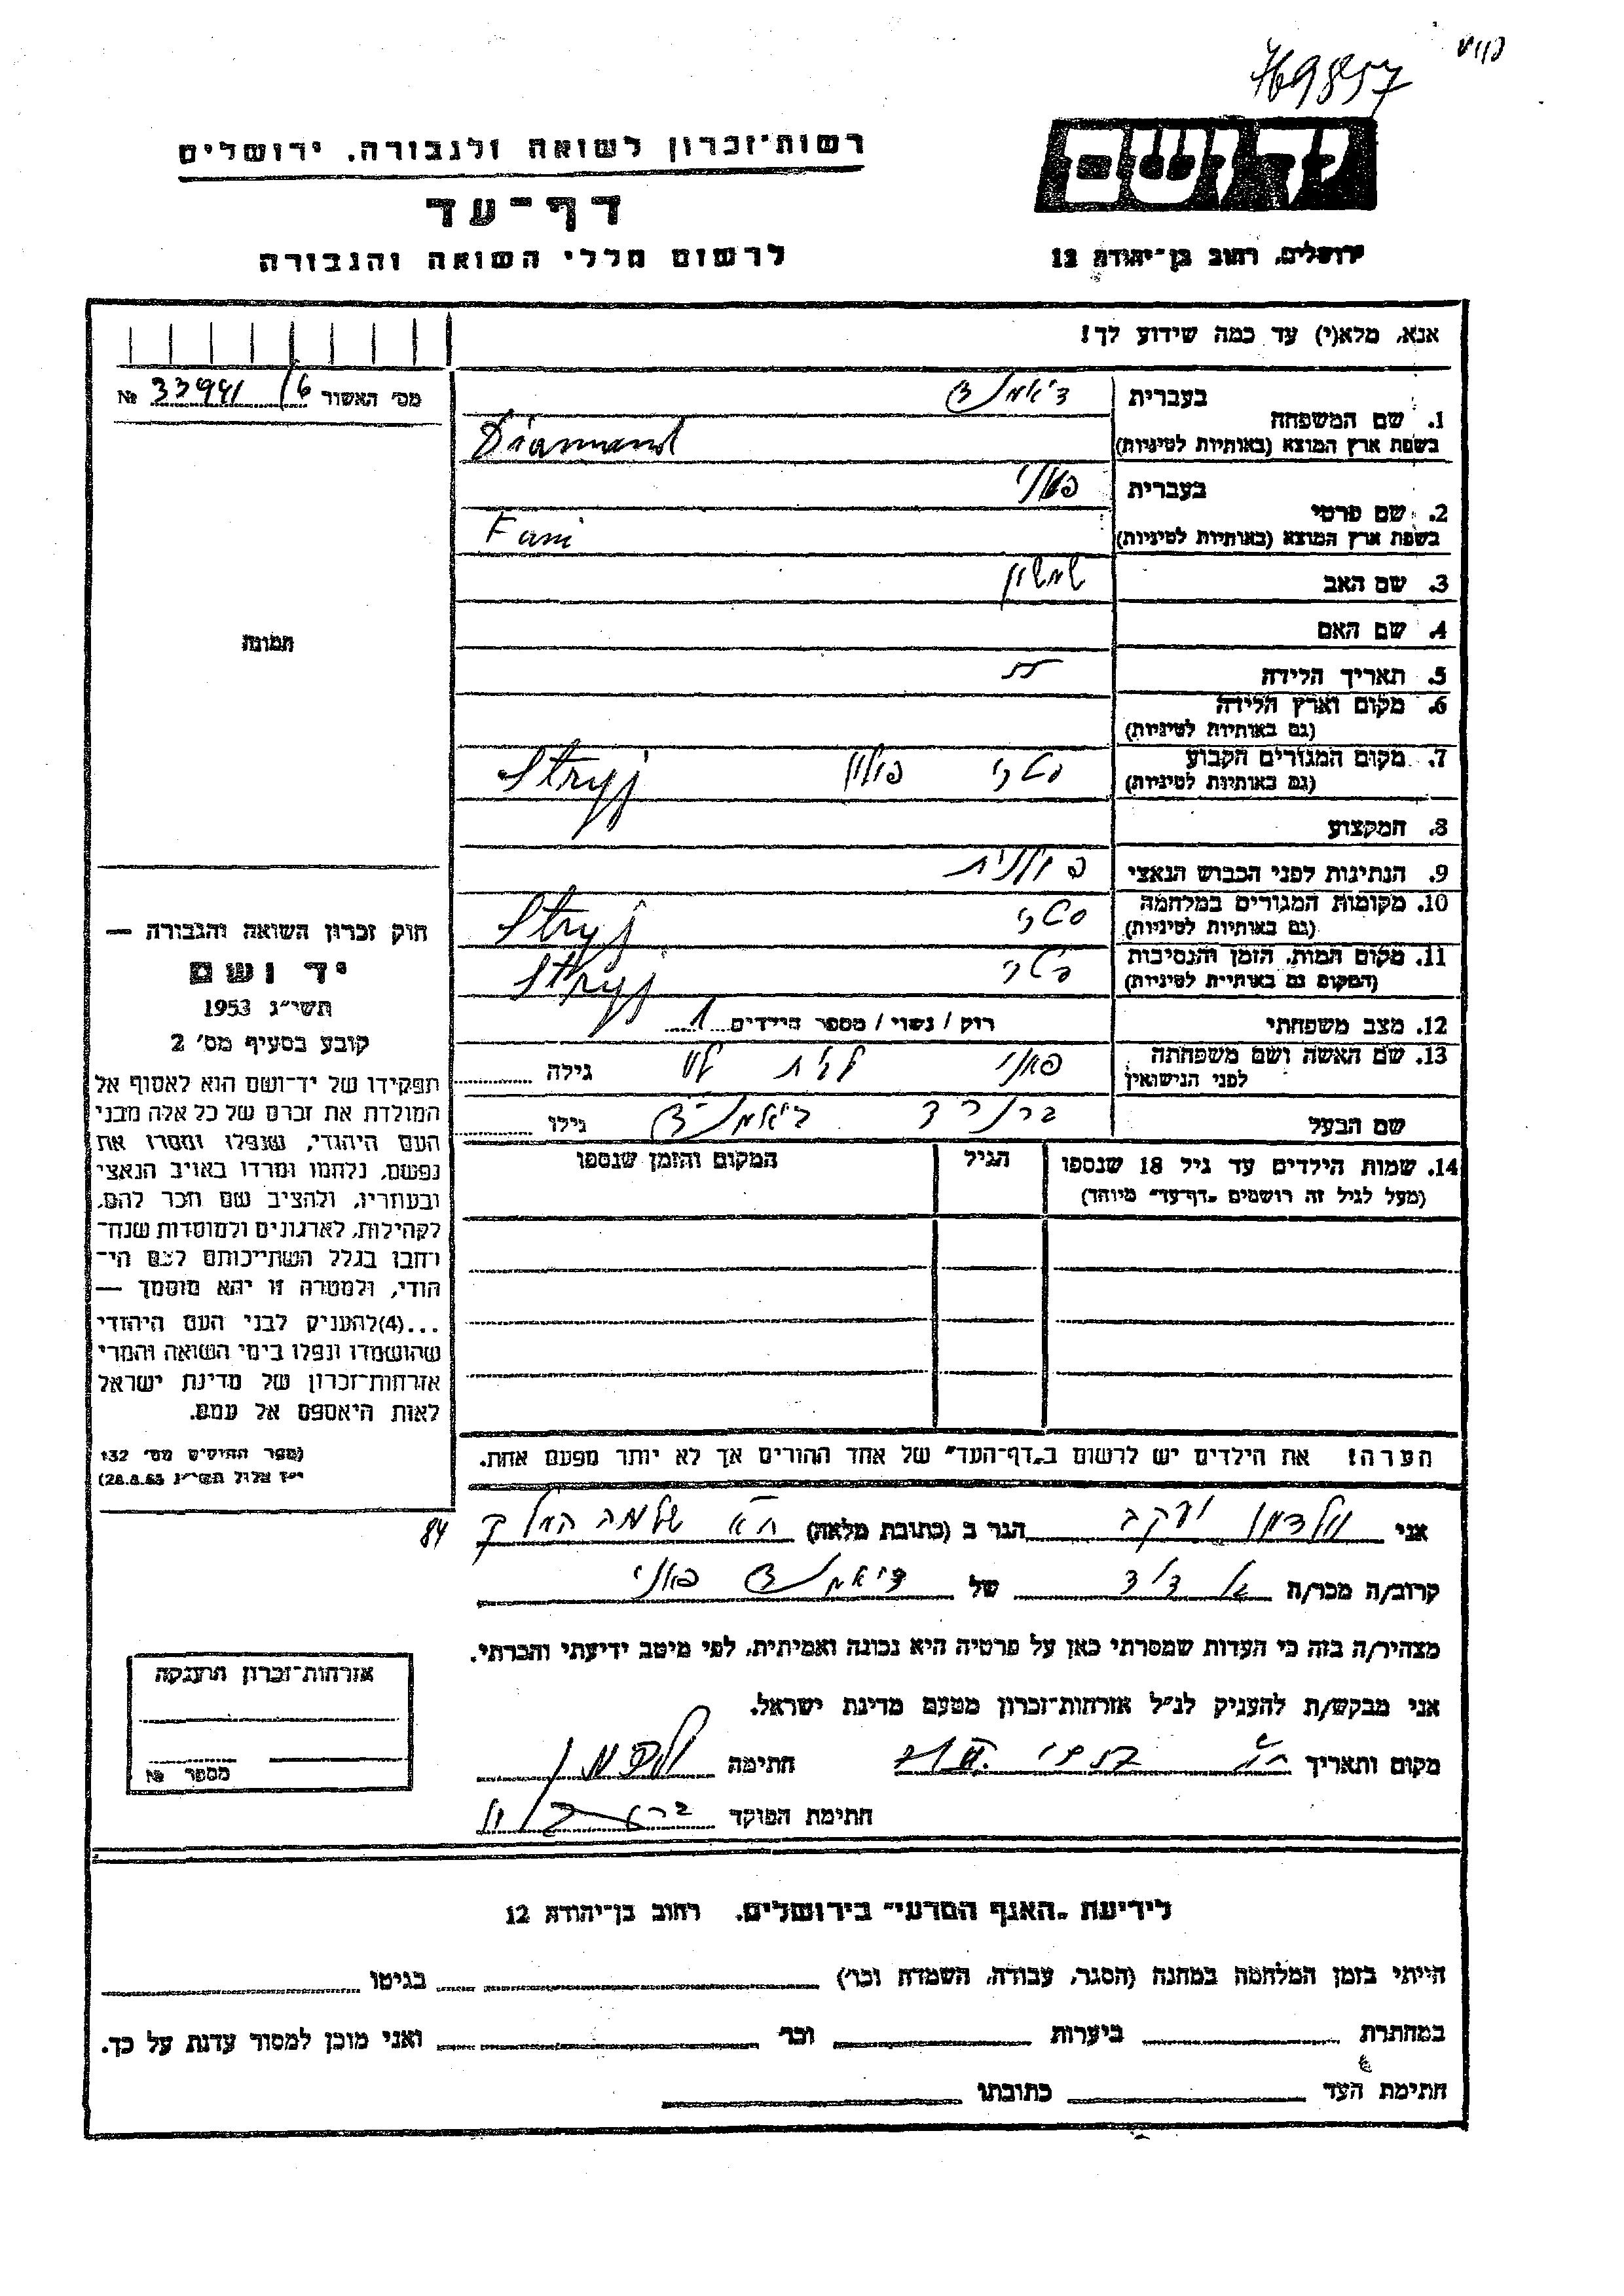 769857
רשות־זכרון לשואה ולגבורה, ירושלים
דף־עד
לרשום חללי השואה והגבורה
יד ושם
ירושלים, רחוב בן־יהודה 12
אנא, מלא(י) עד כמה שידוע לך!
מס' האשור 33941/6 №
תמונה
1. שם המשפחה בעברית דיאמנד
בשפת ארץ המוצא (באותיות לטיניות) Diamand
2. שם פרטי בעברית פאני
בשפת ארץ המוצא (באותיות לטיניות) Fani
3. שם האב שמשון
4. שם האם
5. תאריך הלידה
6. מקום וארץ הלידה
(גם באותיות לטיניות)
7. מקום המגורים הקבוע סטרי פולין Stryj
(גם באותיות לטיניות)
8. המקצוע
9. הנתינות לפני הכבוש הנאצי פולנית
10. מקומות המגורים במלחמה סטרי Stryj
(גם באותיות לטיניות)
11. מקום המות, הזמן והנסיבות סטרי Stryj
(המקום גם באותיות לטיניות)
12. מצב משפחתי רוק / נשוי / מספר הילדים 1
13. שם האשה ושם משפחתה פאני גילה
לפני הנישואין
שם הבעל ברנרד דיאמנד גילו
14. שמות הילדים עד גיל 18 שנספו הגיל המקום והזמן שנספו
(מעל לגיל זה רושמים „דף־עד" מיוחד)
חוק זכרון השואה והגבורה —
יד ושם
תשי"ג 1953
קובע בסעיף מס' 2
תפקידו של יד־ושם הוא לאסוף אל
המולדת את זכרם של כל אלה מבני
העם היהודי, שנפלו ומסרו את
נפשם, נלחמו ומרדו באויב הנאצי
ובעוזריו, ולהציב שם וזכר להם,
לקהילות, לארגונים ולמוסדות שנח־
רחבו בגלל השתייכותם לעם הי־
הודי, ולמטרה זו יהא מוסמך —
...(4)להעניק לבני העם היהודי
שהושמדו ונפלו בימי השואה והמרי
אזרחות־זכרון של מדינת ישראל
לאות היאספם אל עמם.
(ספר החוקים מס' 132
י"ז אלול תשי"ג 28.8.53)
הערה! את הילדים יש לרשום ב„דף־העד" של אחד ההורים אך לא יותר מפעם אחת.
אני ולדמן יעקב הגר ב (כתובת מלאה) ת"א שלמה המלך 84
קרוב/ה מכר/ה של דיאמנד פאני
מצהיר/ה בזה כי העדות שמסרתי כאן על פרטיה היא נכונה ואמיתית, לפי מיטב ידיעתי והכרתי.
אני מבקש/ת להעניק לנ"ל אזרחות־זכרון מטעם מדינת ישראל.
מקום ותאריך חתימה
חתימת הפוקד
אזרחות־זכרון הוענקה
מספר №
לידיעת „האגף המדעי" בירושלים, רחוב בן־יהודה 12
הייתי בזמן המלחמה במחנה (הסגר, עבודה, השמדה וכו') בגיטו
במחתרת ביערות וכו' ואני מוכן למסור עדות על כך.
חתימת העד כתובתו